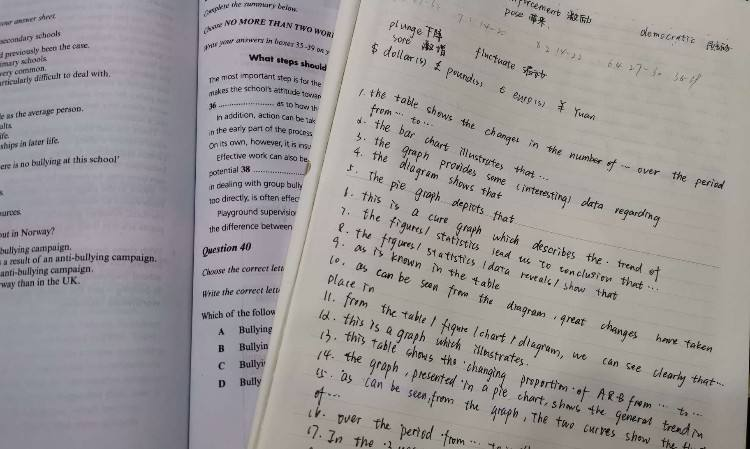 your answer sheet.
secondary schools
d previously been the case.
imary schools.
very common.
articularly difficult to deal with.
e as the average person.
ults.
ife.
ships in later life.
ere is no bullying at this school'
s.
ources.
out in Norway?
bullying campaign.
s a result of an anti-bullying campaign.
anti-bullying campaign.
way than in the UK.
Complete the summary below.
Choose NO MORE THAN TWO WOR
Write your answers in boxes 35-39 on y
What steps should
The most important step is for the
makes the school's attitude towar
36 .................... as to how th
In addition, action can be tak
in the early part of the process
On its own, however, it is insu
Effective work can also be
potential 38 ....................
in dealing with group bully
too directly, is often effec
Playground supervisio
the difference between
Question 40
Choose the correct lett
Write the correct lette
Which of the follow
A Bullying
B Bullyin
C Bullyi
D Bully
nforcement 激励
pose 带来
democratic
plunge 下降
fluctuate
$ dollar(s) £ pound(s) € euro(s) ¥ Yuan
1. the table shows the changes in the number of ... over the period
from ... to ...
2. the bar chart illustrates that ...
3. the graph provides some (interesting) data regarding
4. the diagram shows that
5. The pie graph depicts that
6. this is a cure graph which describes the trend of
7. the figures/ statistics lead us to conclusion that ...
8. the figures/ statistics /data reveals/ show that
9. as is known in the table
10. as can be seen from the diagram, great changes have taken
place in
11. from the table / figure / chart / diagram, we can see clearly that...
12. this is a graph which illustrates.
13. this table shows the changing proportion of A&B from ... to ...
14. the graph, presented in a pie chart, shows the general trend in
15. as can be seen from the graph, The two curves show the
of ...
16. over the period from ... to
17. In the